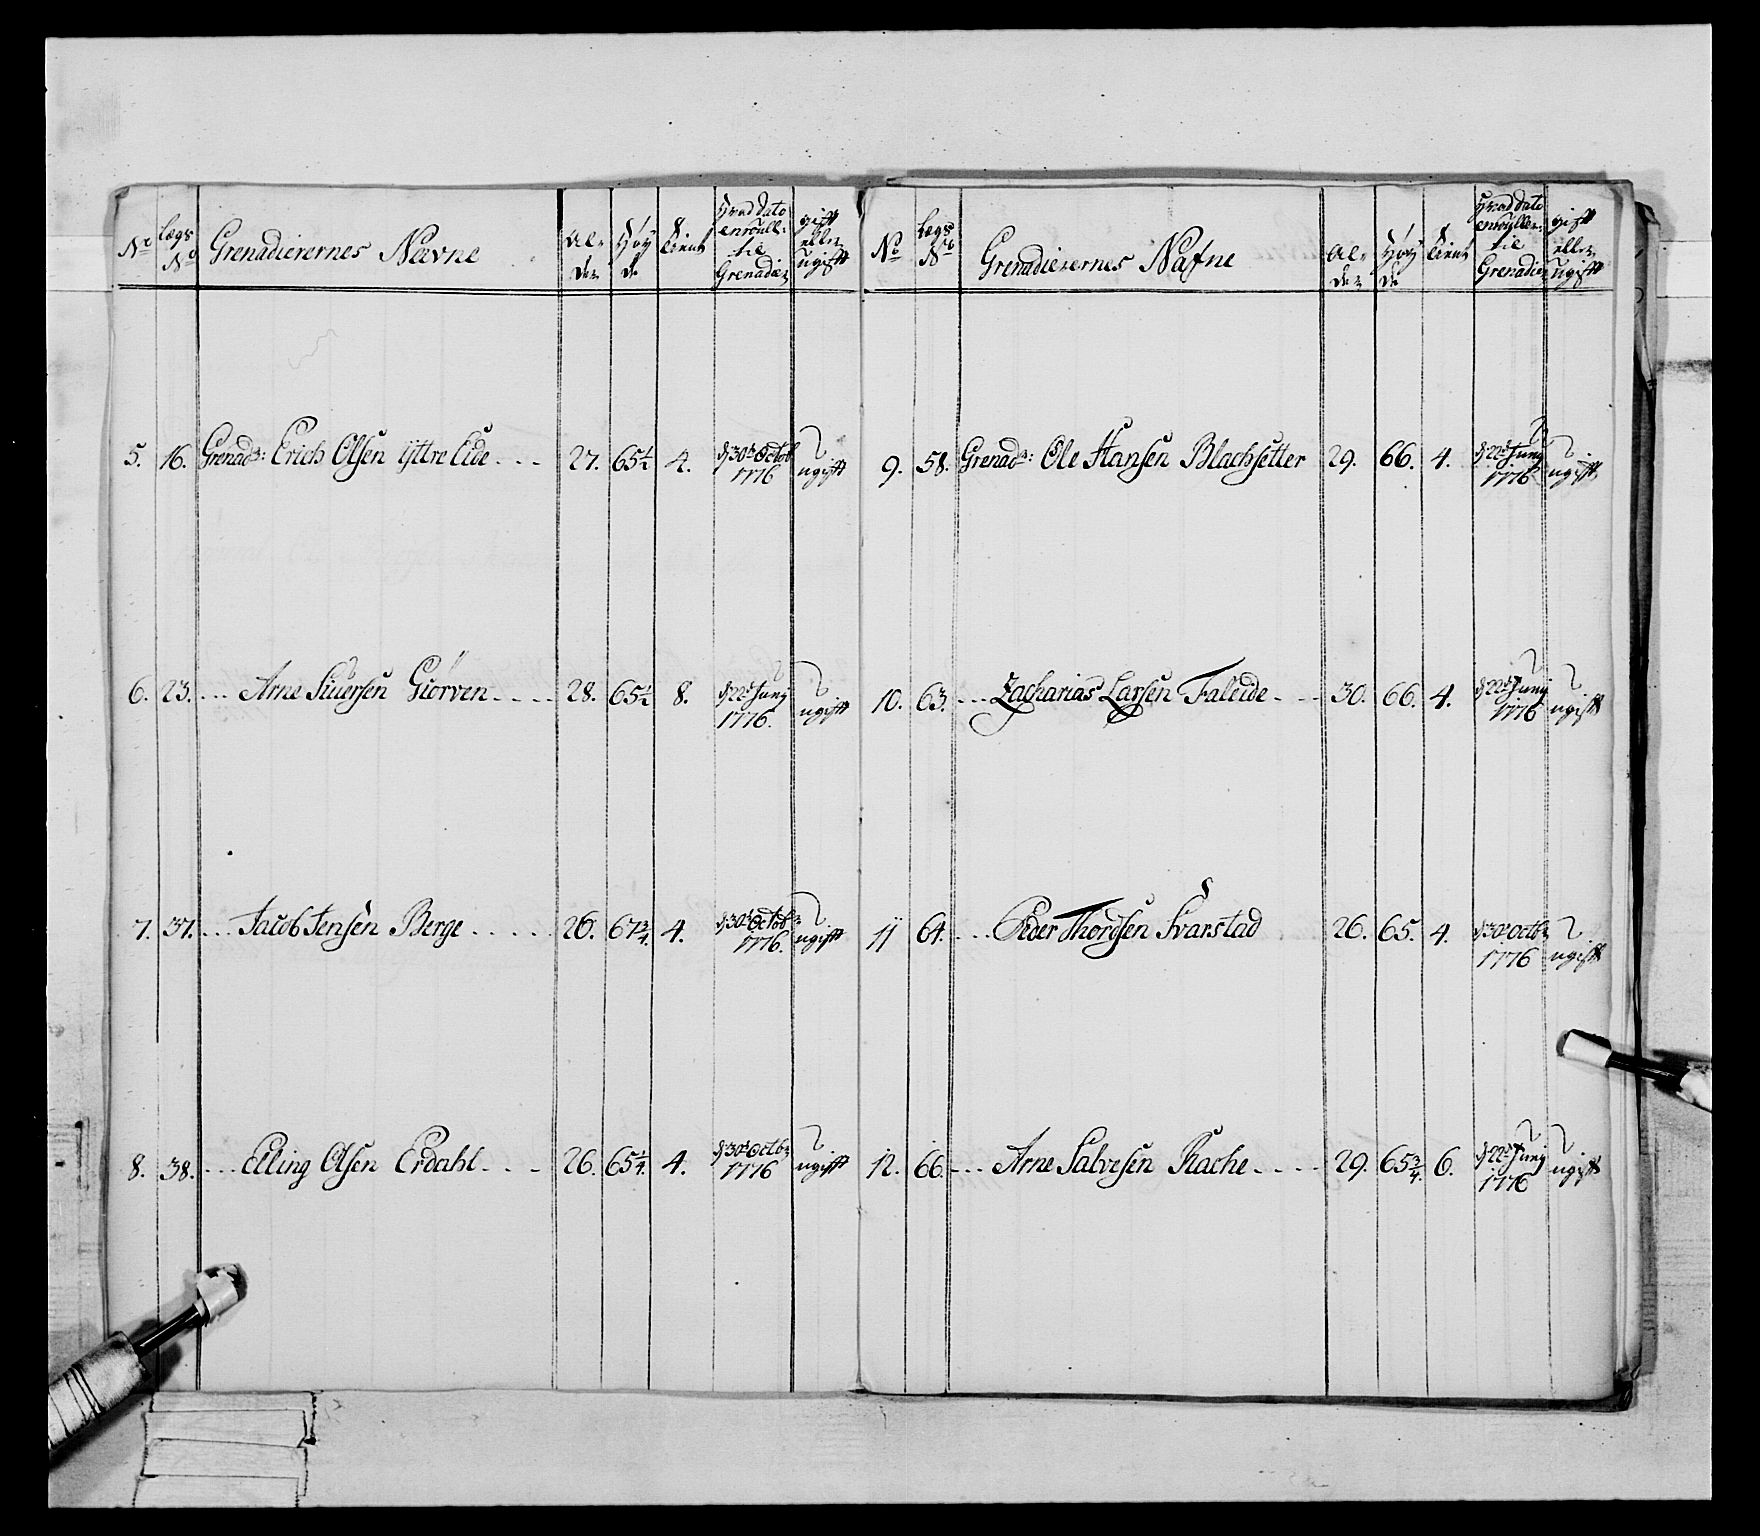 No
Lægs No
Grenadierernes Navne
Al-
der
Høy
de
Tient
Hvad dato
enroulle-
til
Grenadier
gift
eller
ugift
5. 16. Grenadr: Erich Olsen ÿttre Eide . . . 27. 65 1/2 4. d: 30t Octob 1776 ugift
6. 23. . . . Arne Siuersen Giörven . . . . 28. 65 1/2 8. d 22t Juny 1776. ugift
7. 37. . . . Jacob Jensen Berge . . . . . 26. 67 3/4. 4. d: 30t Octob 1776. ugift
8. 38. . . . Elling Olsen Erdahl . . . 26. 65 1/4. 4. d: 30t Octbr 1776 ugift
No
Lægs No
Grenadierernes Nafne
Al-
der
Høy
de
Tient
Hvad dato
enroyller-
til
Grenadier
gift
eller
ugift
9. 58. Grenadr: Ole Hansen Blachsetter 29. 66. 4. d 22t Juny 1776 ugift
10. 63. . . . Zacharias Larsen Faleide . . . 30. 66. 4. d 22t Juny 1776 ugift
11 64. . . . Peder Thordsen Svarstad 26. 65. 4. d 30t Octbr 1776 ugift
12. 66. . . . Arne Salvesen Rache . . . . 29. 65 3/4. 6. d 22t Juny 1776 ugift